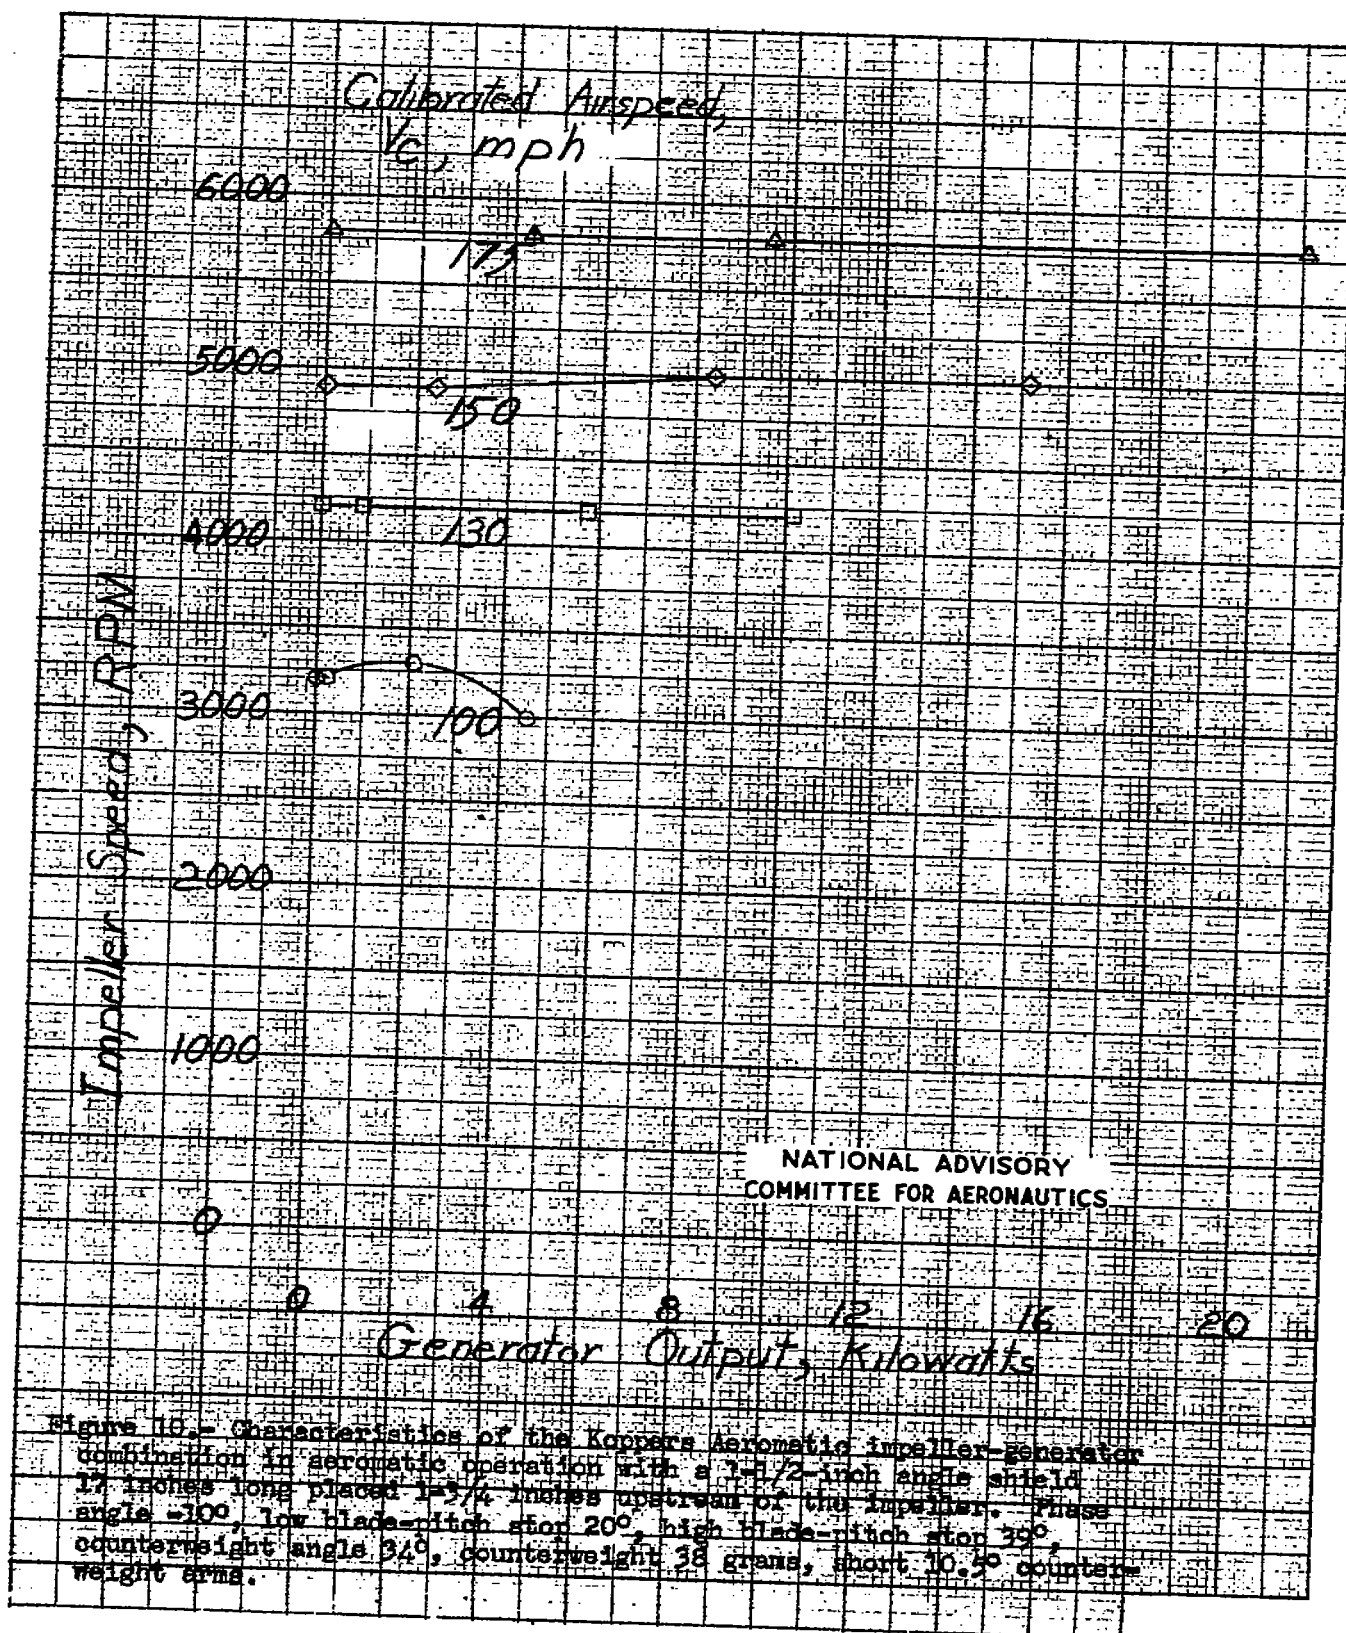 Calibrated Airspeed,
Vc, mph
6000
175
5000
150
4000
130
3000
100
2000
1000
0
Impeller Speed, RPM
NATIONAL ADVISORY
COMMITTEE FOR AERONAUTICS
0 4 8 12 16 20
Generator Output, Kilowatts
Figure 10.- Characteristics of the Koppers Aeromatic impeller-generator
combination in aeromatic operation with a 1-1/2-inch angle shield
17 inches long placed 1-3/4 inches upstream of the impeller. Phase
angle -10°, low blade-pitch stop 20°, high blade-pitch stop 39°,
counterweight angle 34°, counterweight 38 grams, short 10.5° counter-
weight arms.